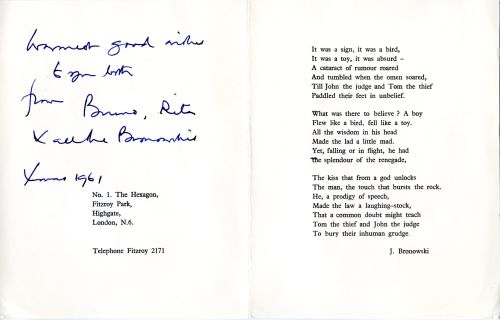 Warmest good wishes
to you both
from Bruno, Rita
& all the Bronowskis
Xmas 1961
No. 1. The Hexagon,
Fitzroy Park,
Highgate,
London, N.6.
Telephone Fitzroy 2171
It was a sign, it was a bird,
It was a toy, it was absurd –
A cataract of rumour roared
And tumbled when the omen soared,
Till John the judge and Tom the thief
Paddled their feet in unbelief.
What was there to believe ? A boy
Flew like a bird, fell like a toy.
All the wisdom in his head
Made the lad a little mad.
Yet, falling or in flight, he had
the splendour of the renegade,
The kiss that from a god unlocks
The man, the touch that bursts the rock.
He, a prodigy of speech,
Made the law a laughing-stock,
That a common doubt might teach
Tom the thief and John the judge
To bury their inhuman grudge.
J. Bronowski